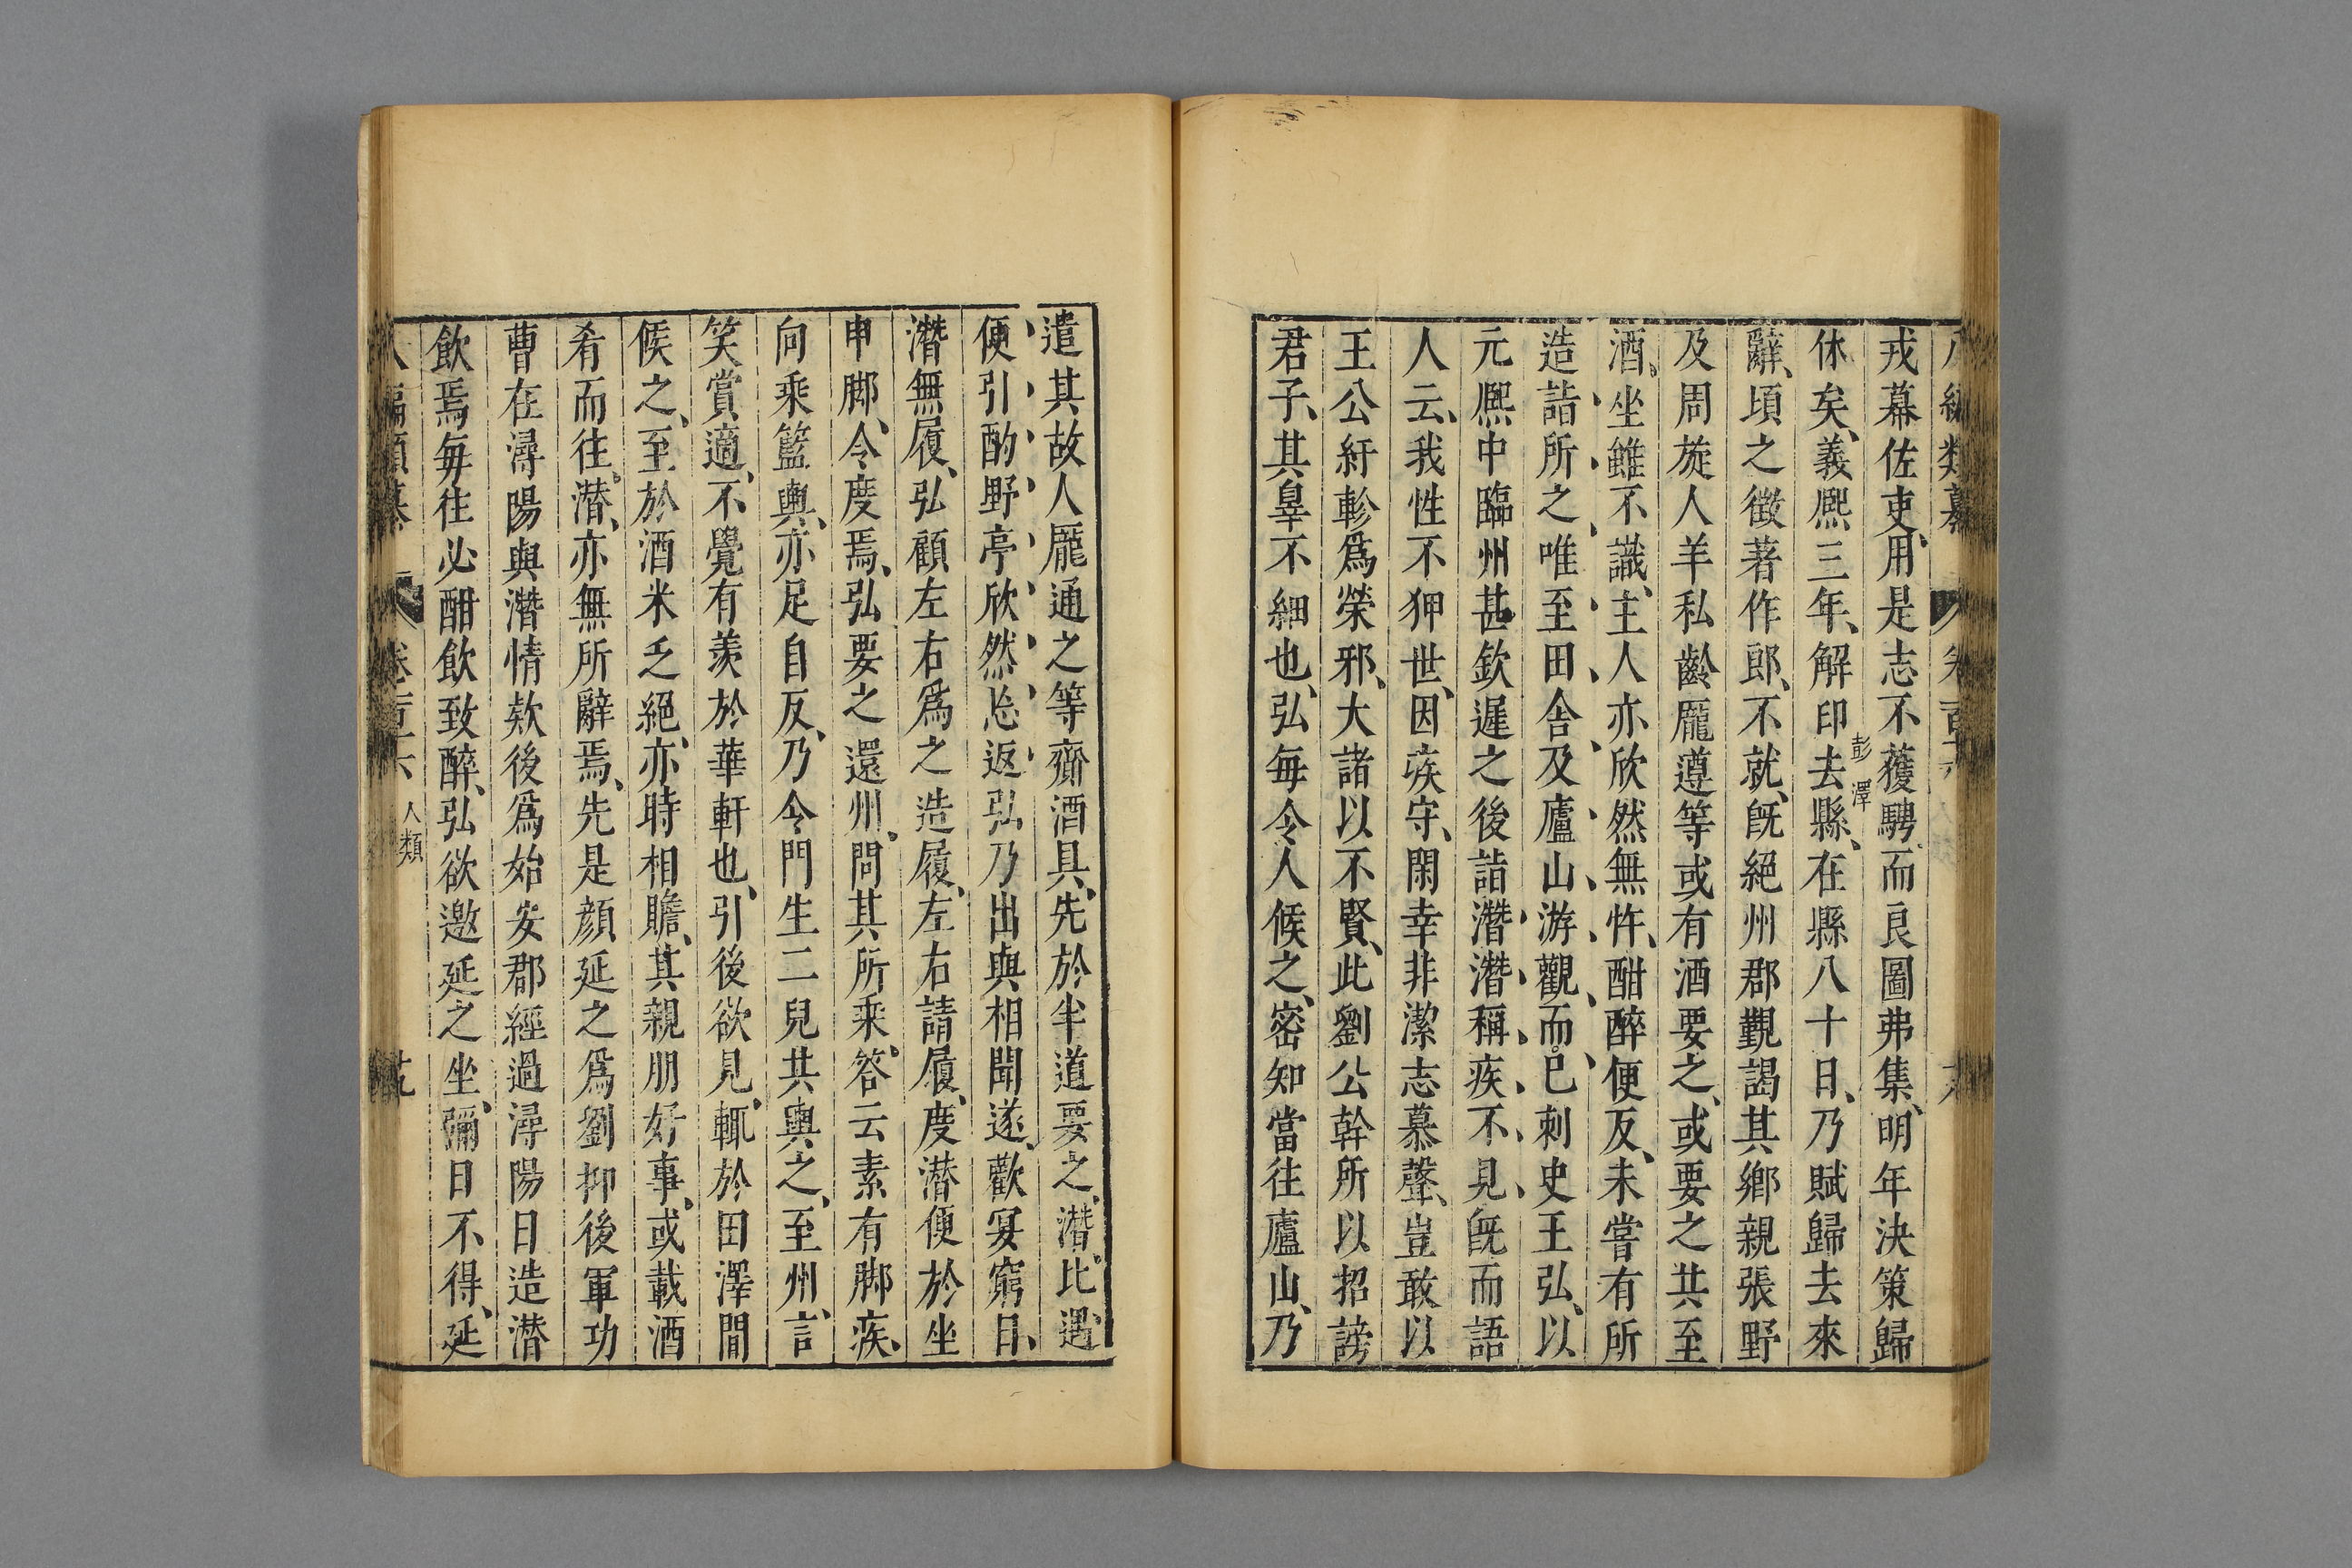 八編類纂
卷百十六
戎幕佐吏用是志不獲騁而良圖弗集、明年決策歸
休矣、義熙三年、解印去縣、在縣八十日、乃賦歸去來
彭澤
辭、頃之徵著作郎、不就、旣絕州郡覲謁其鄉親張野
及周旋人羊私齡龐遵等或有酒要之、或要之共至
酒坐雖不識主人亦欣然無忤、酣醉便反、未嘗有所
造詣所之唯至田舍及廬山游觀而已刺史王弘、以
元熙中臨州甚欽遲之後詣潛潛稱疾不見旣而語
人云、我性不狎世、因疾守、閑幸非潔志慕聲、豈敢以
王公紆軫爲榮邪、大諸以不賢、此劉公幹所以招謗
君子、其辠不細也、弘每令人候之、密知當往廬山、乃
遣其故人龐通之等齎酒具、先於半道要之、潛比遇、
便引酌野亭欣然忘返弘乃出與相聞遂、歡宴窮日、
潛無履、弘顧左右爲之造履、左右請履、度潛便於坐
申脚、令度焉、弘要之還州、問其所乘、答云素有脚疾、
向乘籃輿、亦足自反、乃令門生二兒共輿之、至州、言
笑賞適、不覺有羨於華軒也、引後欲見、輒於田澤間
候之、至於酒米乏絕、亦時相贍、其親朋好事、或載酒
肴而往、潛、亦無所辭焉、先是顏延之爲劉抑後軍功
曹在潯陽與潛情欵後爲始安郡經過潯陽日造潛
飲焉每往必酣飲致醉、弘欲邀延之坐、彌日不得、延
人類